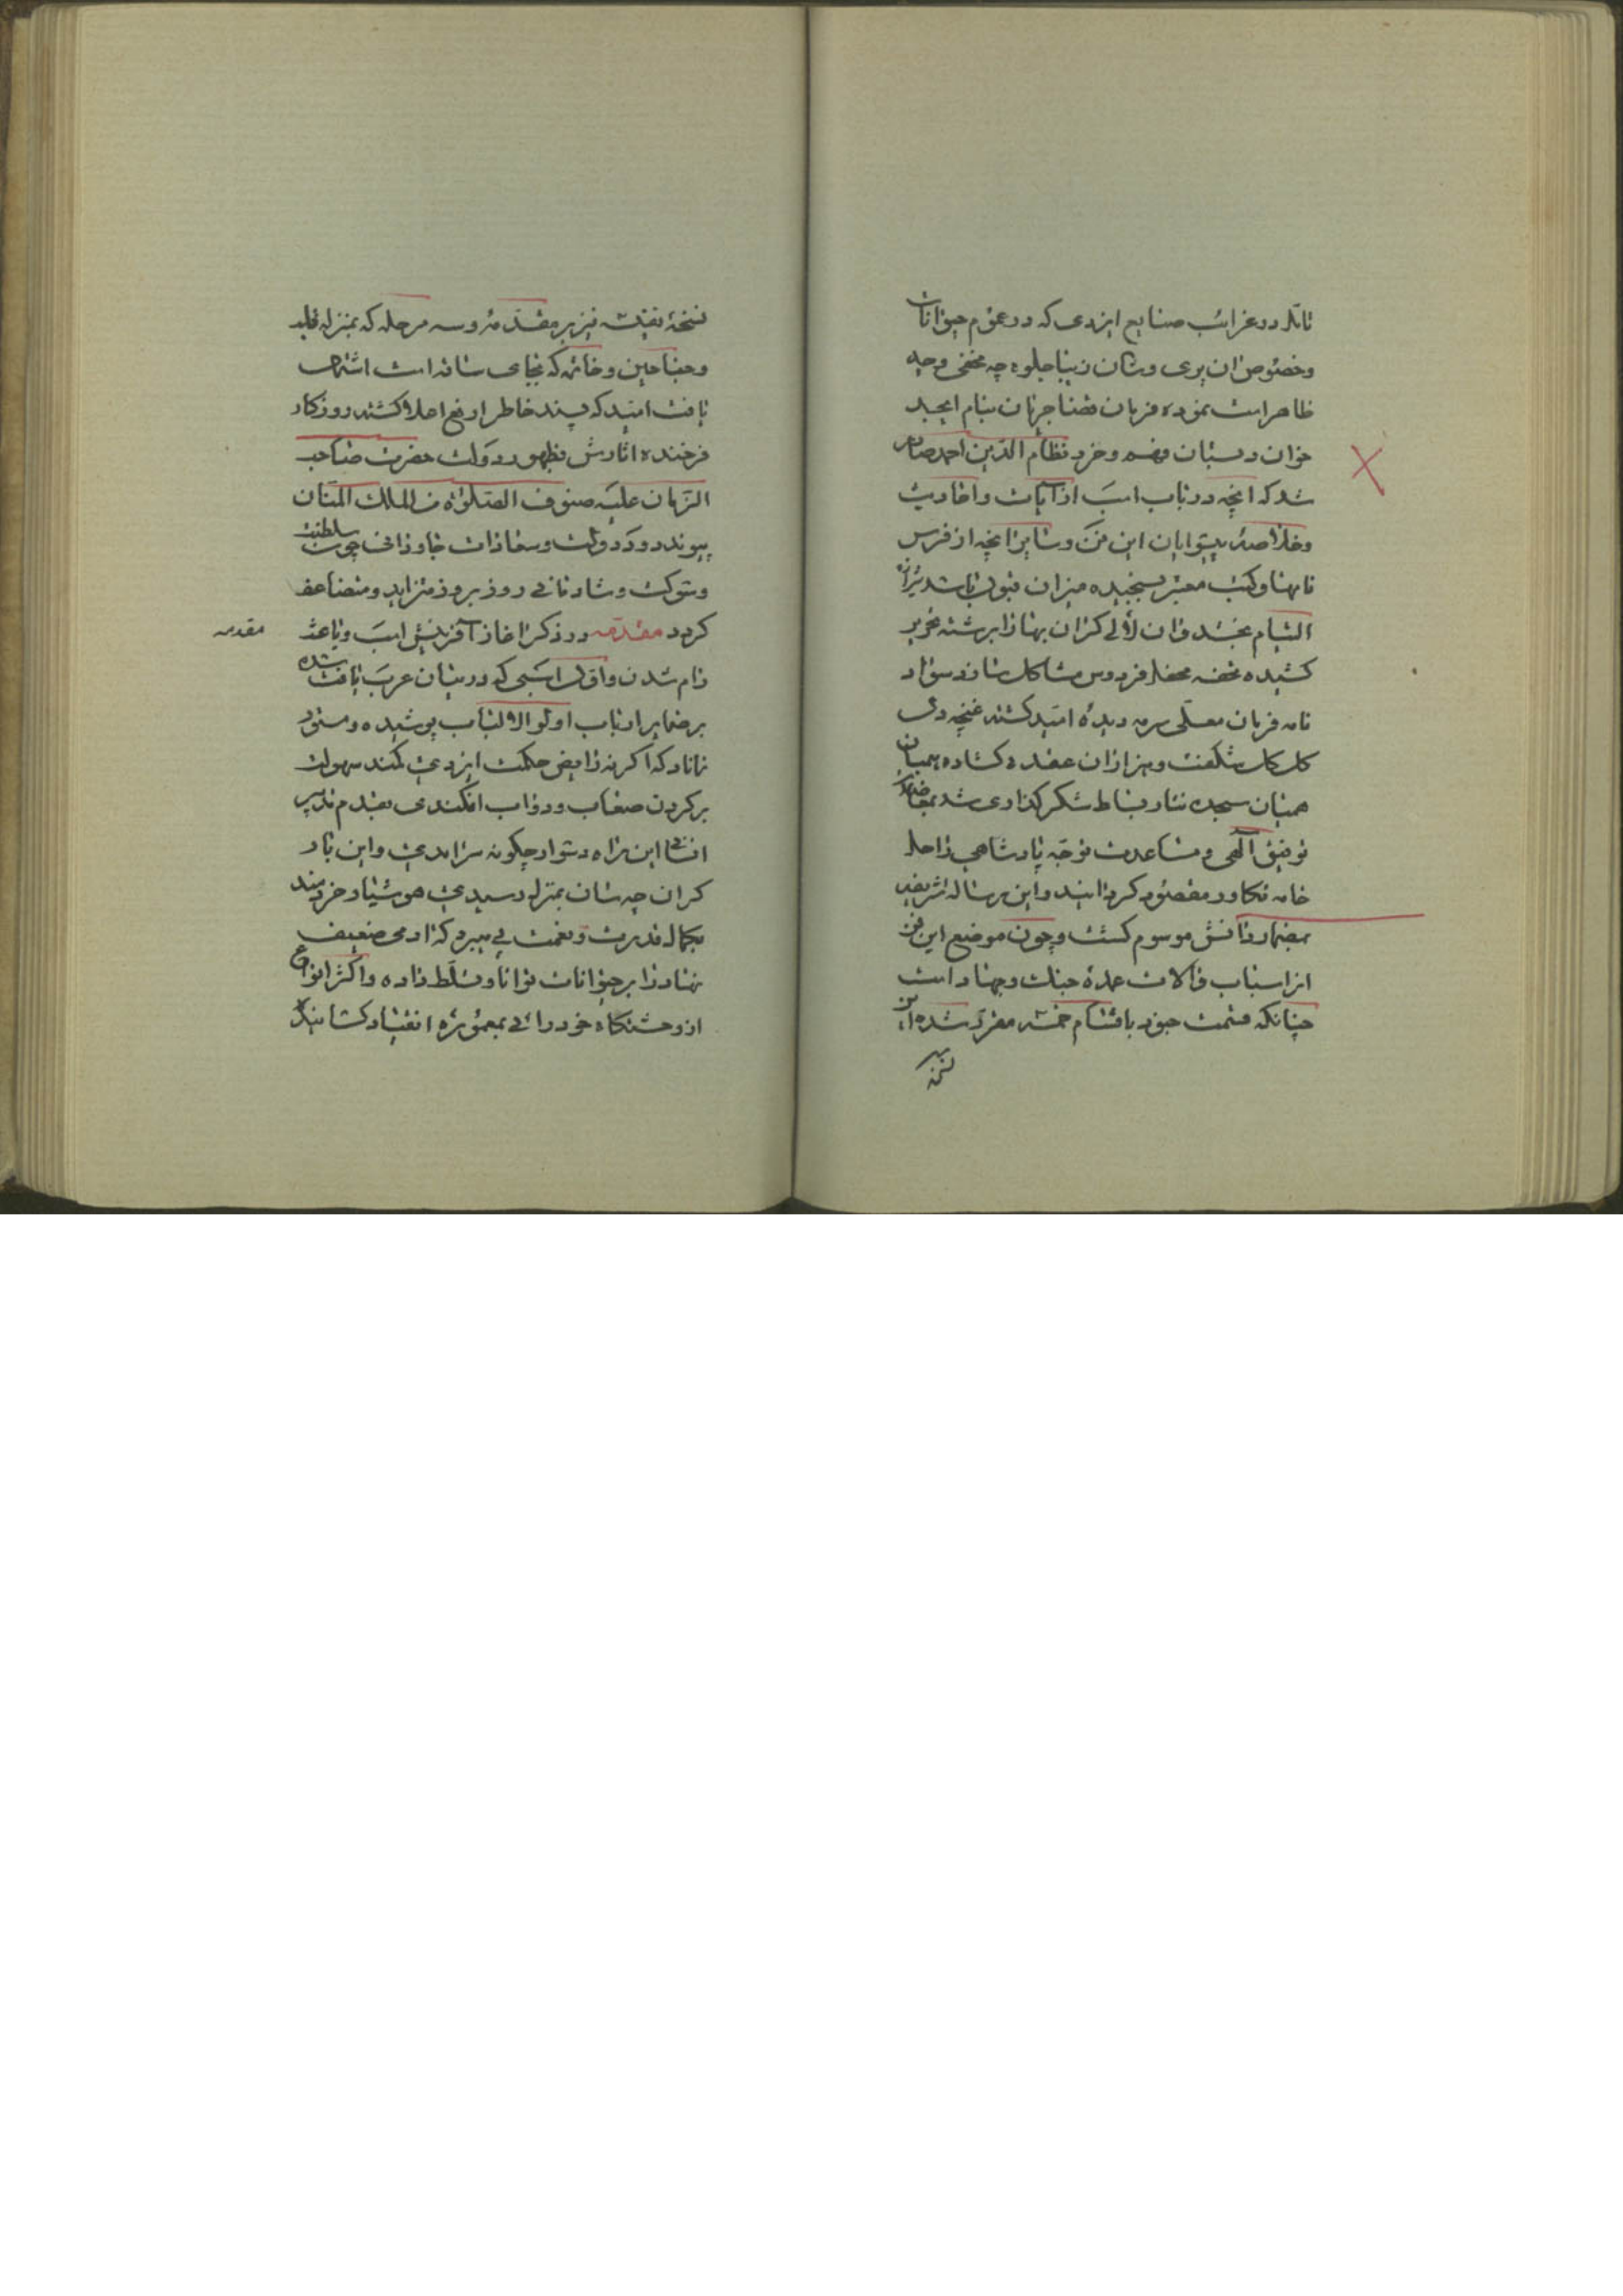 تامل در غرایب صنایع ایزدی که در عموم حیوانات
وخصوص ان پری وشان زیبا جلوه چه مخفی وچه
ظاهر است نموده فرمان قضا جریان بنام ابجد
خوان دبستان فهم وخرد نظام الدین احمد صادر
شد که انچه در باب اسب از آیات واحادیث
وخلاصه پیشوایان این فن وسایر انچه از فرس
نامها وکتب معتبر بسنجیده میزان قبول باشد
التیام بخشد وان لآلی کران بها را برشته تحریر
کشیده تحفه محفل فردوس مشاکل سازد سواد
نامه فرمان معلی سرمه دیده امید کشته غنچه دل
کل کل شکفت وهزاران عقده کشاده
همیان سجده نثار بساط شکر کذاری شد
توفیق آلهی ومساعدت توجه پادشاهی راحله
خامه تکاور مقصود کردانید واین رساله شریفه
بمضمار دانش موسوم کشت وچون موضع این فن
از اسباب والات عمده جنک وجهاد است
چنانکه قسمت جنود باقسام خمسه مقرر شده این
نسخه
نسخه نفیسه نیز بر مقدمه وسه مرحله که بمنزله قلب
وجناحین وخاتمه که بجای ساقه است اشتمال
یافت امید که پسند خاطر ارفع اعلا کشته روزکار
فرخنده اثارش بظهور دولت حضرت صاحب
الزمان علیه صنوف الصلوة من الملک المنان
پیوندد ودولت وسعادات جاودانی چون سلطنت
وشوکت وشادمانی روز بروز متزاید ومتضاعف
کردد مقدمه در ذکر اغاز آفرینش اسب وباعث
رام شدن واول اسبی که در میان عرب یافت شده
مقدمه
بر ضمایر ارباب اولوالالباب پوشیده ومستور
نماناد که اکر نه رایض حکمت ایزدی کمند سهولت
بر کردن صعاب ودواب افکندی بقدم تدبیر
انسانی این راه دشوار چکونه سرامدی واین بار
کران چه سان بمنزل رسیدی هوشیار خردمند
بکمال قدرت ونعمت پی میبرد که ادمی ضعیف
نهاد را بر حیوانات توانا وتسلط داده واکثر انواع
از وحشتکاه خود رائی بمعموره انقیاد کشانیده